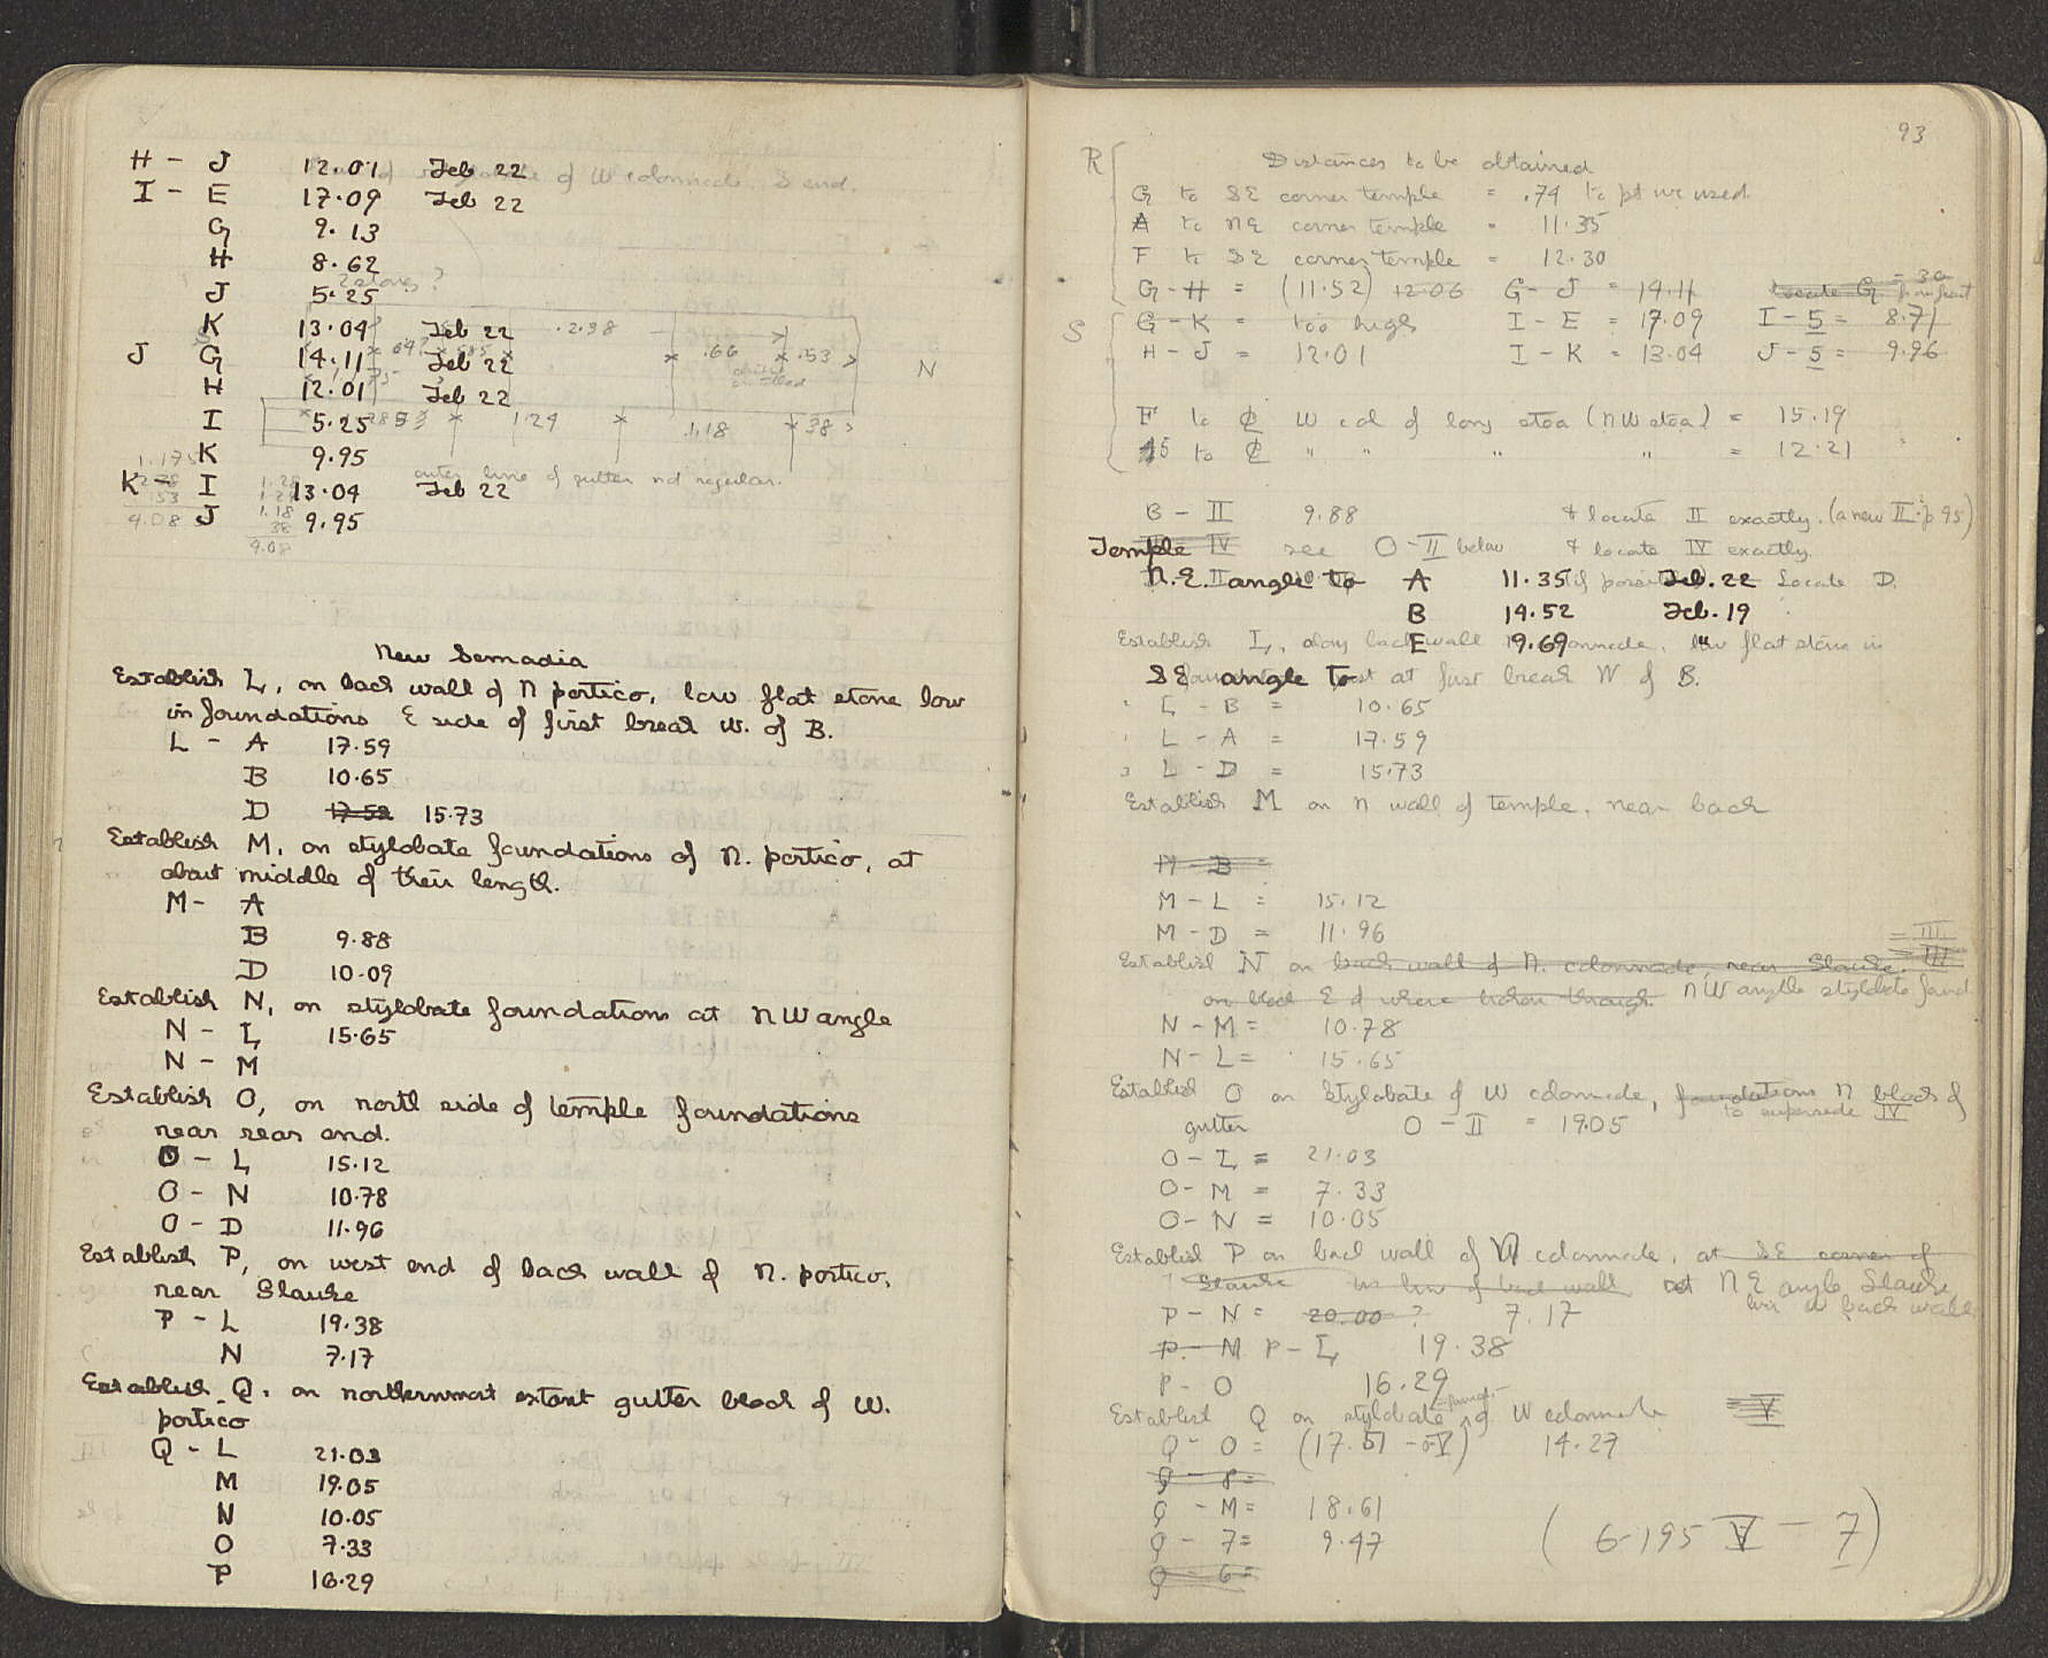 H - J 12.01 Feb 22
I - E 17.09 Feb 22
G 9.13
H 8.62
2 stones?
J 5.25
K 13.04 Feb 22
2.38
J G 14.11 Feb 22
.66 .53
N
H 12.01 Feb 22
I 5.25
1.24 1.18 38
K 9.95
1.175
outer line of gutter not regular.
K - I 13.04 Feb 22
153
4.08
J 9.95
1.18
38
4.08
New Semadia
Establish L, on back wall of N portico, low flat stone low
in foundations E side of first break W. of B.
L - A 17.59
B 10.65
D 17.52 15.73
Establish M, on stylobate foundations of N. portico, at
about middle of their length.
M - A
B 9.88
D 10.09
Establish N, on stylobate foundations at NW angle
N - L 15.65
N - M
Establish O, on north side of temple foundations
near rear end.
O - L 15.12
O - N 10.78
O - D 11.96
Establish P, on west end of back wall of N. portico,
near Glauke
P - L 19.38
N 7.17
Establish Q, on northernmost extant gutter block of W.
portico
Q - L 21.03
M 19.05
N 10.05
O 7.33
P 16.29
93
R Distances to be obtained
G to SE corner temple = .74 to pt we used
A to NE corner temple = 11.35
F to SE corner temple = 12.30
G - H = (11.52) 12.06 G - J = 14.11 Locate G
S G - K = too high I - E = 17.09 I - 5 = 8.71
H - J = 12.01 I - K = 13.04 J - 5 = 9.96
F to ℄ W col of long stoa (NW stoa) = 15.19
15 to ℄ " " " " = 12.21
B - II 9.88 & locate II exactly. (a new II p 95)
IV see O - II below & locate IV exactly.
Temple
N.E. angle to A 11.35 Feb. 22
Locate D.
B 14.52 Feb. 19
Establish L, along back wall N colonnade, low flat stone in
E 19.69 "
SE angle to
at first break W of B.
L - B = 10.65
L - A = 17.59
L - D = 15.73
Establish M on N wall of temple, near back
M - B =
M - L = 15.12
M - D = 11.96
= III
Establish N on back wall of N. colonnade, near Glauke. = III
on block E of where broken through NW angle stylobate found
N - M = 10.78
N - L = 15.65
Establish O on Stylobate of W colonnade, foundations N block of
to supersede IV
gutter O - II = 19.05
O - L = 21.03
O - M = 7.33
O - N = 10.05
Establish P on back wall of N colonnade, at SE corner of
Glauke in line of back wall at NE angle Glauke
P - N = 20.00 ? 7.17
P - M P - L 19.38
P - O 16.29
Establish Q on stylobate of W colonnade = V
Q - O = (17.51 - V) 14.27
Q - P =
Q - M = 18.61
Q - 7 = 9.47
(6.195 V - 7)
Q - 6 =